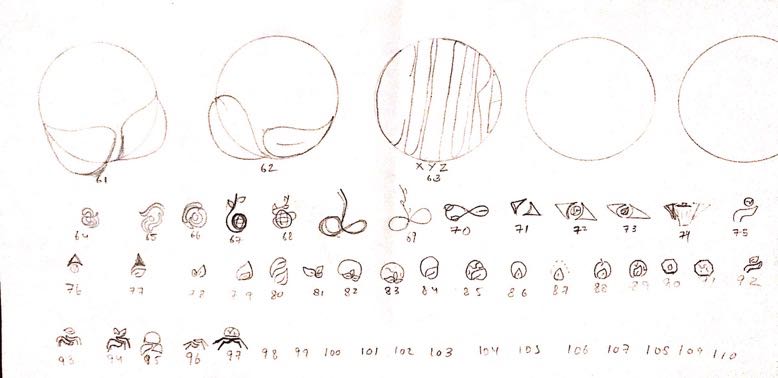 61 62 XYZ
63
64 65 66 67 68 69 70 71 72 73 74 75
76 77 78 79 80 81 82 83 84 85 86 87 88 89 90 91 92
93 94 95 96 97 98 99 100 101 102 103 104 105 106 107 108 109 110